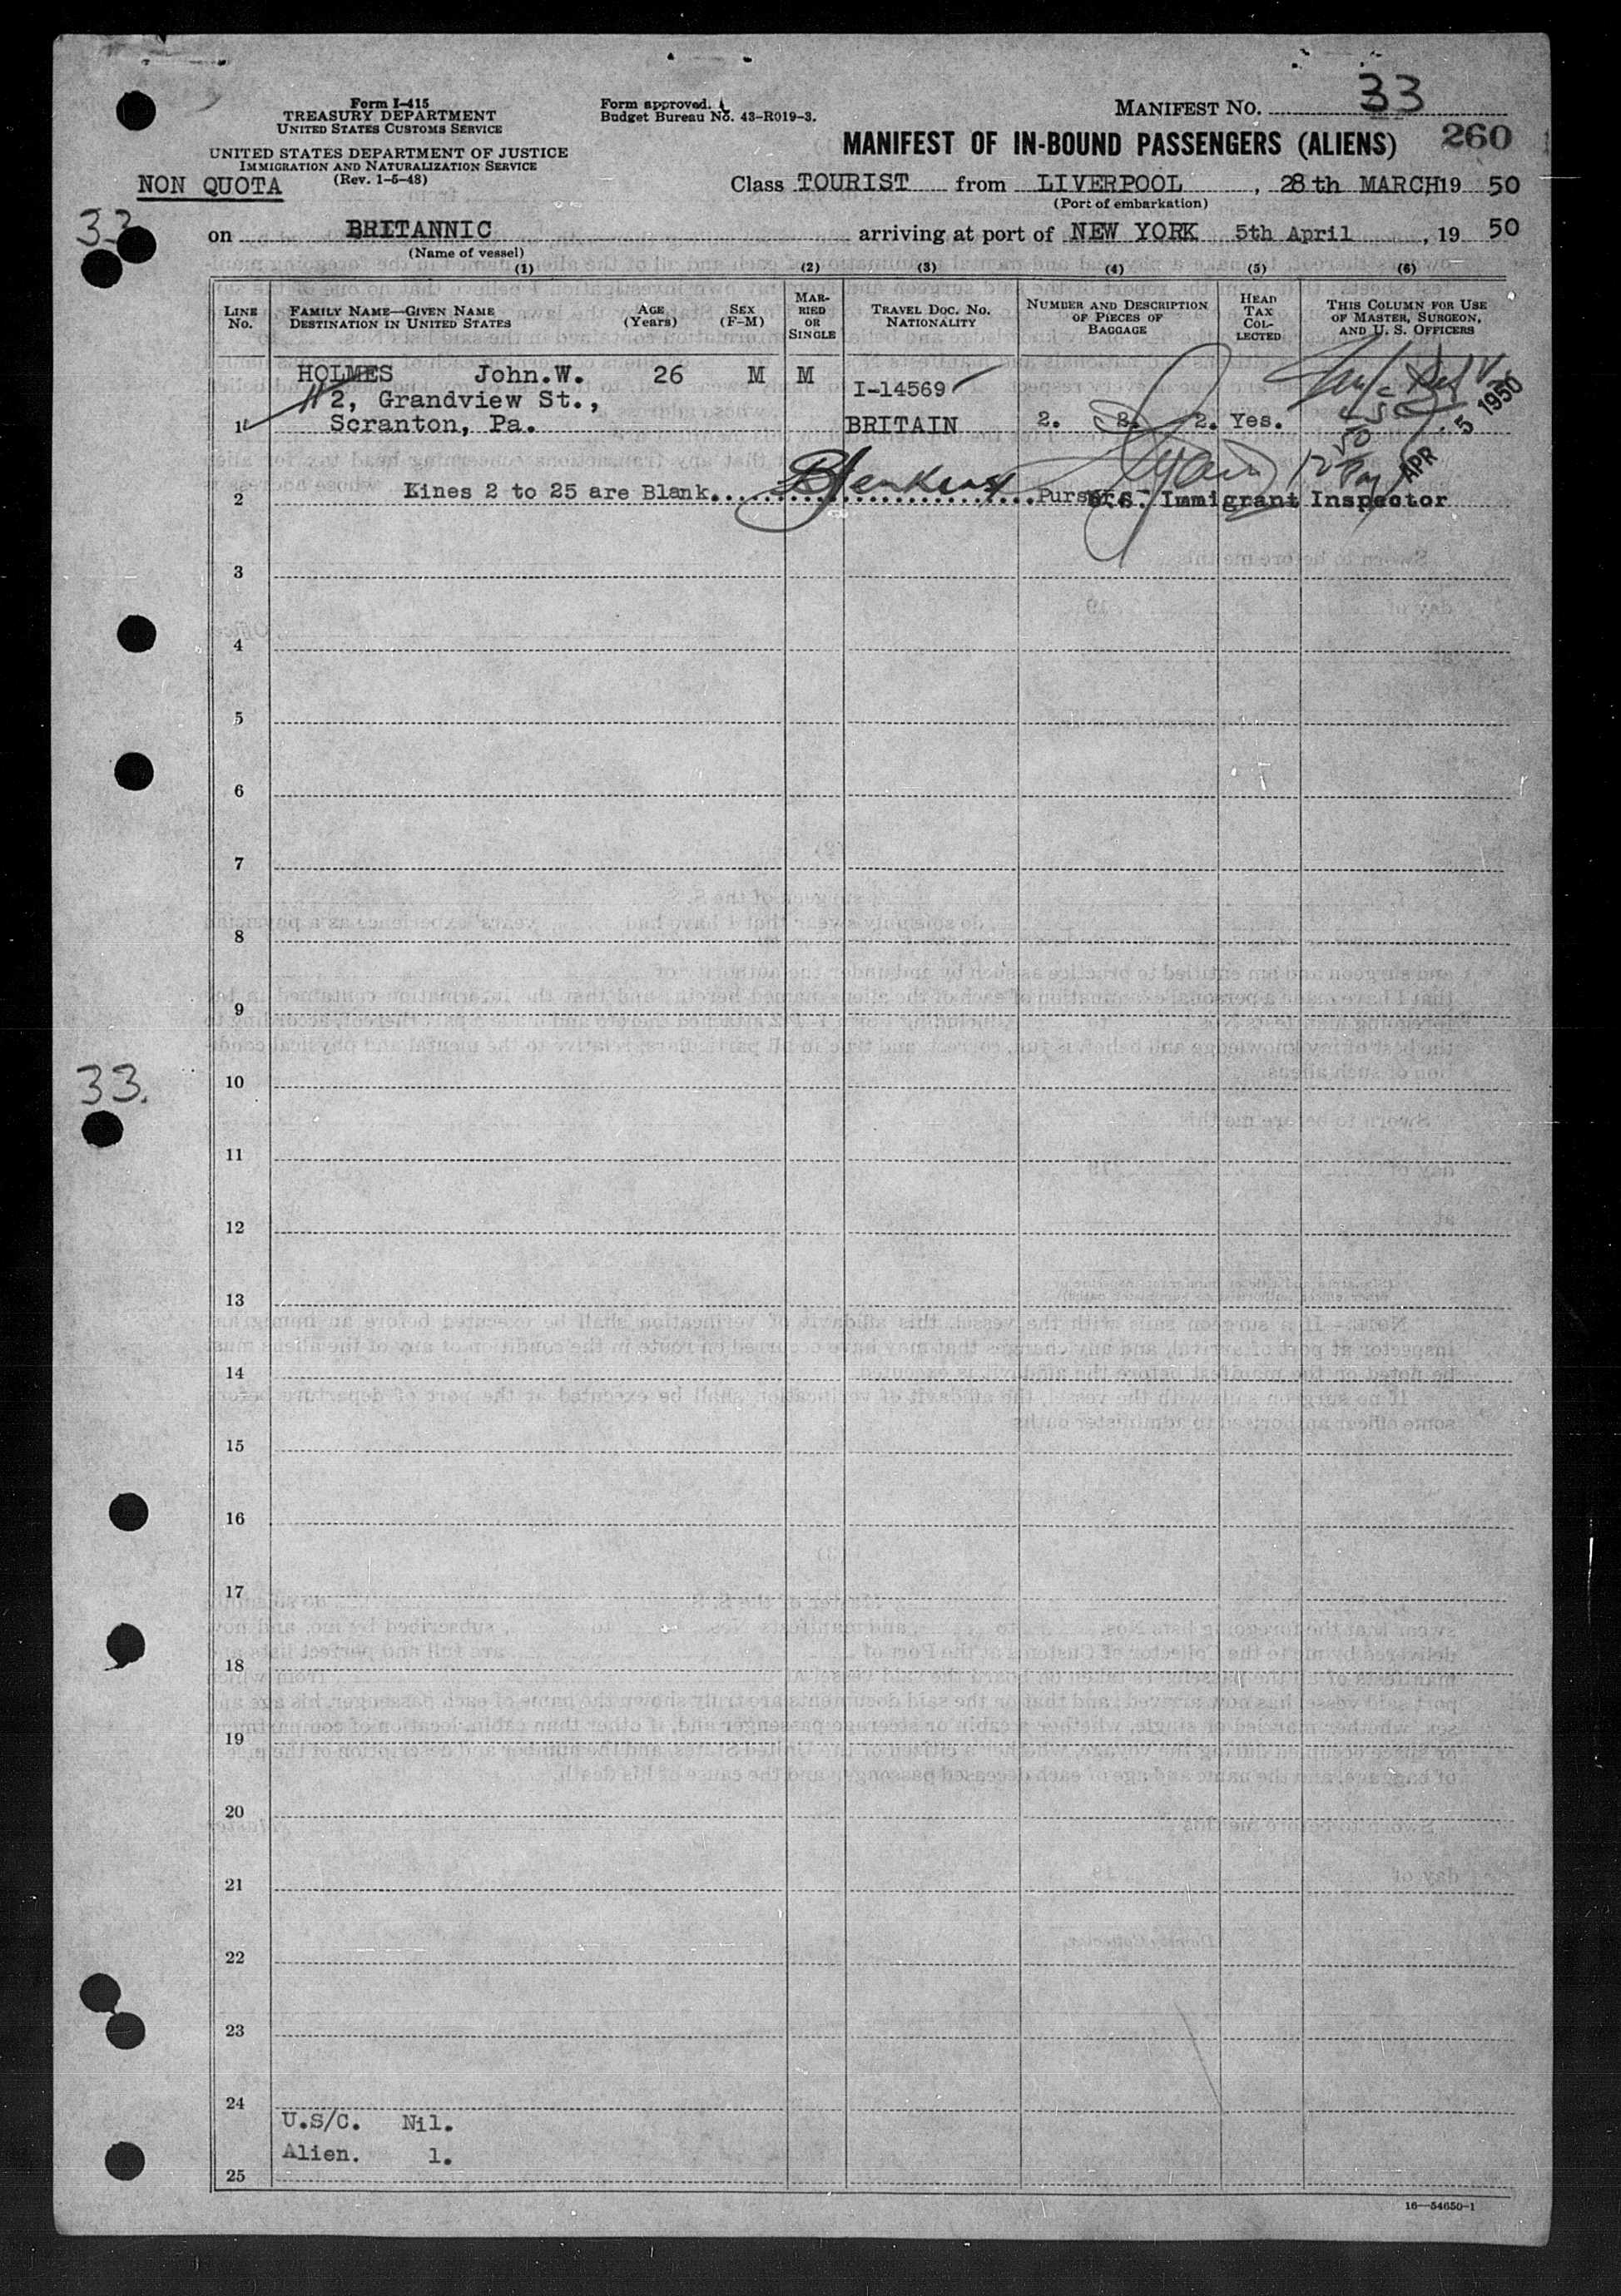 Form I-415
TREASURY DEPARTMENT
UNITED STATES CUSTOMS SERVICE
UNITED STATES DEPARTMENT OF JUSTICE
IMMIGRATION AND NATURALIZATION SERVICE
(Rev. 1-5-48)
NON QUOTA
Form approved.
Budget Bureau No. 43-R019-3.
MANIFEST NO. 33
MANIFEST OF IN-BOUND PASSENGERS (ALIENS) 260
Class TOURIST from LIVERPOOL, 28th MARCH 19 50
(Port of embarkation)
33
on BRITANNIC arriving at port of NEW YORK 5th April, 19 50
(Name of vessel)
(1) (2) (3) (4) (5) (6)
LINE No.
FAMILY NAME—GIVEN NAME
DESTINATION IN UNITED STATES
AGE (Years)
SEX (F-M)
MARRIED OR SINGLE
TRAVEL DOC. NO. NATIONALITY
NUMBER AND DESCRIPTION OF PIECES OF BAGGAGE
HEAD TAX COLLECTED
THIS COLUMN FOR USE OF MASTER, SURGEON, AND U. S. OFFICERS
HOLMES John.W. 26 M M I-14569
2, Grandview St.,
1 Scranton, Pa. BRITAIN 2. 2. Yes.
APR 5 1950
2 Lines 2 to 25 are Blank. BJenkins Purser. U.S. Immigrant Inspector
3
4
5
6
7
8
9
33.
10
11
12
13
14
15
16
17
18
19
20
21
22
23
24
U.S/C. Nil.
Alien. 1.
25
16—54650-1